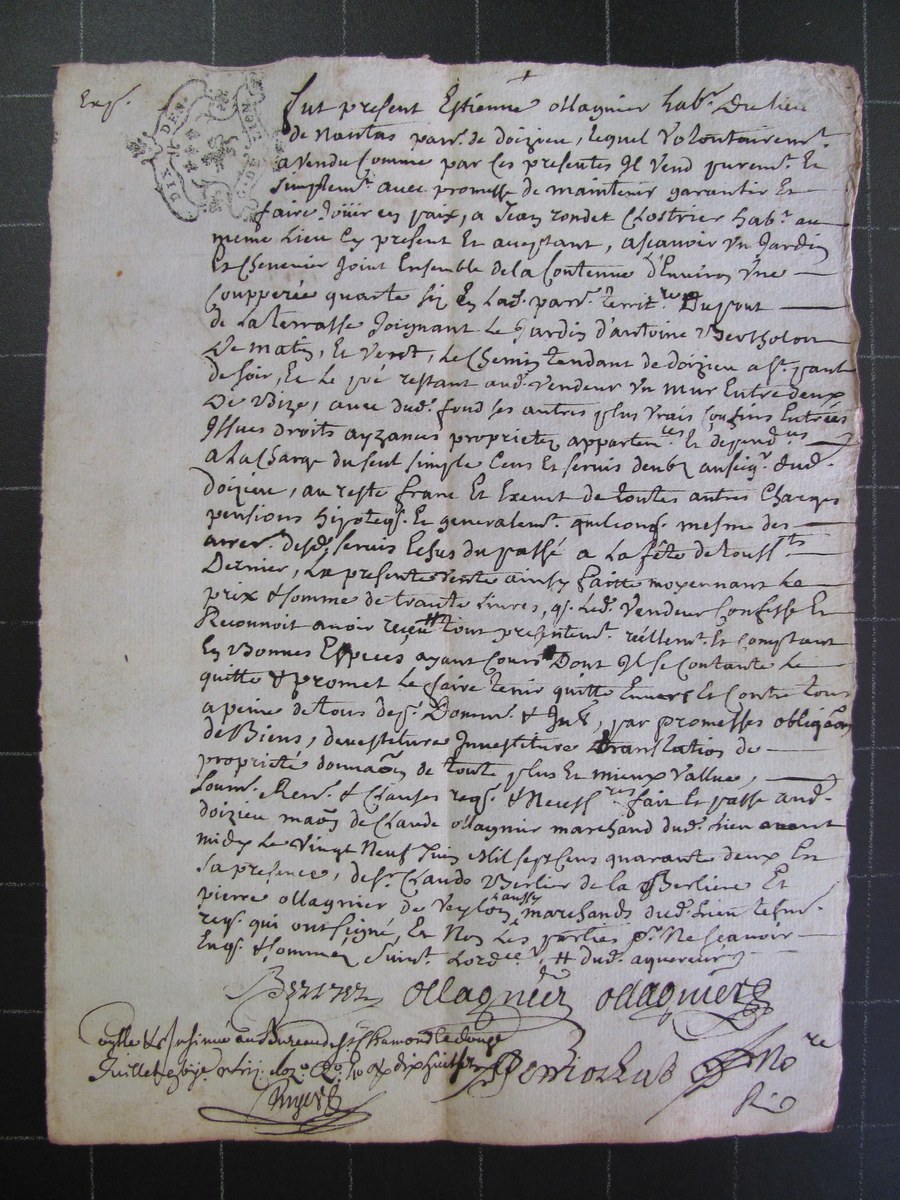 Exp.
DIX·H·DEN
G·DE·LION
fut present Estienne ollagnier hab.t Du lieu
de Nantas parr. de doizieu, lequel Volontairem.t
a vendu Comme par Ces presentes Il Vend purem.t Et
simplem.t avec promesse de maintenir garantir Et
faire Jouir en paix, a Jean rondet Clostrier hab.t au
meme lieu Cy present Et aceptant, ascavoir Un Jardin
Et Chenevier Joint Ensemble de la Contenue d'Environ Une
Coupperée quarte siz En lad. parr. territ.re Dupont
de La terrasse Joignant Le Jardin d'antoine Bertholon
De matin, Et Vent, Le Chemin tendant de doizieu a S.t
de soir, Et Le pré restant aud. Vendeur Un mur Entredeux
De Bize, avec dud. fond ses autres plus Vrais Confins Entrées
Issues droits ayzances proprietez apparten.ces Et depend.ces
a La Charge du seul simple Cens Et servis deub au seig.r dud.
doizieu, au reste franc Et Exempt de toutes autres Charges
pensions hipoteq. Et generalem.t quelconq. mesme des
arrer. desd. servis Echus du passé a La fête de touss.ts
Dernier, La presente Vente ainsy faitte moyennant Le
prix & somme de trante Livres, q. Led. Vendeur Confesse Et
Reconnoit avoir reçeu # tout presentem.t réellem.t Et Comptant
En Bonnes Espèces ayant Cours Dont Il se Contante Le
quitte & promet Le faire tenir quitte Envers Et Contre tous
a peine de tous desp. Domm. & Int., par promesses obligãons
de Biens, devestiture Investiture translation de
proprieté donnaõn de toute plus Et mieux Vallue,
Soum. Ren. & Clauses req. & Necess.res fait Et passé aud.
doizieu maõn de Claude ollagnier marchand dud. Lieu avant
midy Le Vingt Neuf Juin Mil sept Cens quarante deux En
la presence, de Sr. Claude Berlier de la Berliere Et
pierre ollagnier de Veylon aussy marchands dud. Lieu tesm.
req. qui ont signé, Et Non Les parties p.r Ne sçavoir
Enq. & sommés Suiv.t Lord.ce # dud. aquereur
Berlier ollagnier ollagnier
Collé & Insinué au Bureau de S.t Chamond le douze
Juillet
No.re